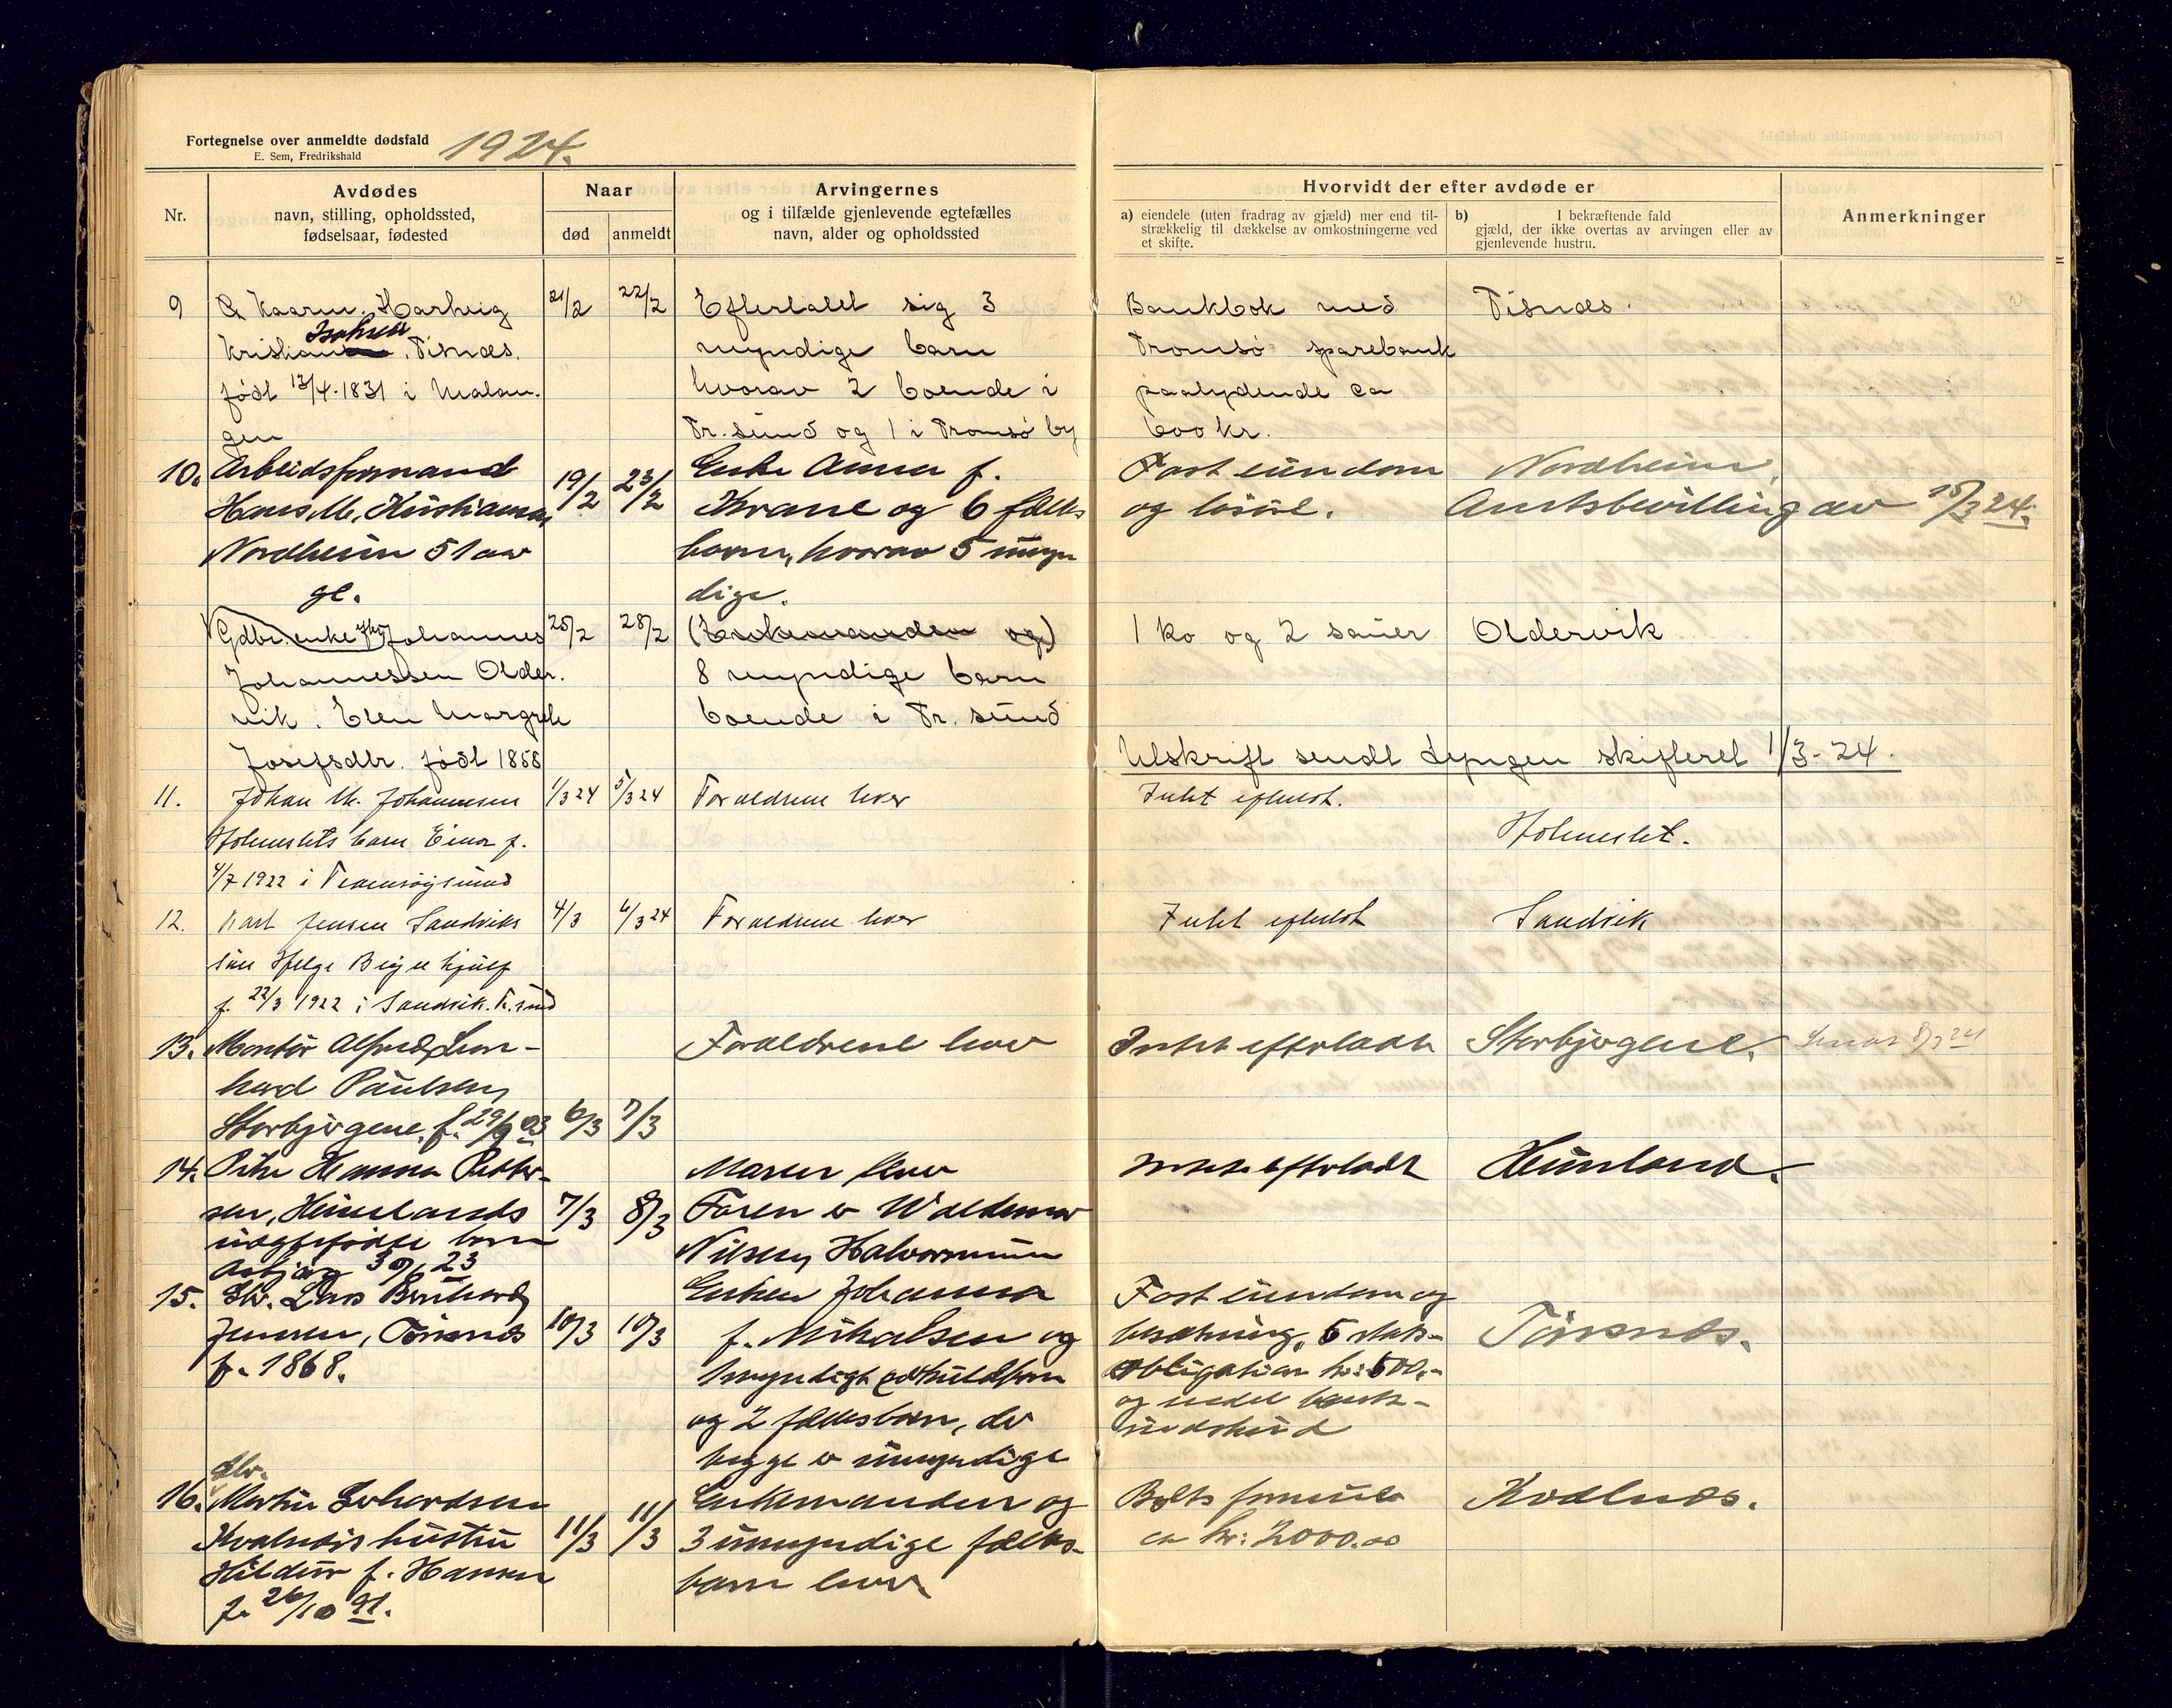 Fortegnelse over anmeldte dødsfald
E. Sem, Fredrikshald
1924.
Nr.
Avdødes
navn, stilling, opholdssted,
fødselsaar, fødested
Naar
død
anmeldt
Arvingernes
og i tilfælde gjenlevende egtefælles
navn, alder og opholdssted
Hvorvidt der efter avdøde er
a) eiendele (uten fradrag av gjæld) mer end til-
strækkelig til dækkelse av omkostningerne ved
et skifte.
b) I bekræftende fald
gjæld, der ikke overtas av arvingen eller av
gjenlevende hustru.
Anmerkninger
9
Kaarm. Hartvig
Isaksen
Kristian, Tisnæs.
født 13/4.1831 i Malan.
gen
21/2
22/2
Efterlatt sig 3
myndige barn
hvorav 2 boende i
Tr.sund og 1 i Tromsø by
Bankbok med
Tromsø sparebank
paalydende ca
600 kr.
Tisnæs.
10.
Arbeidsformand
Hans M. Kristiansen
Nordheim 51 aar
gl.
19/2
23/2
Enke Anna f.
Krane og 6 fælles
barn, hvorav 5 umyn
dige.
Fast eiendom
og løsøre.
Nordheim.
Amtsbevilling av 15/3 24.
Gdbr. enke efter Johannes
Johannessen Older.
vik. Elen Margrete
Josefsdtr. født 1858
25/2
28/2
(Enkemanden og)
8 myndige barn
boende i Tr. sund
1 ko og 2 sauer
Oldervik
Utskrift sendt Lyngen skifteret 1/3-24.
11.
Johan M. Johannesen
Holmeslets barn Einar f.
4/7 1922 i Tromsøysund
1/3 24
5/3 24
Forældrene lever
Intet efterlatt.
Holmeslet.
12.
Karl Jensen Sandviks
søn Helge Birger
f. 22/3 1922 i Sandvik. Tr.sund
4/3
6/3 24
Forældrene lever
Intet efterlatt
Sandvik
13.
Montør Alfred Leon-
hard Paulsen,
Storbjørgene. f. 29/9 03
6/3
7/3
Forældrene lever
Intet efterladt
Storbjørgene.
8/3 24
14.
Pike Hanna Petter-
sen, Heimlands
uægtefødte barn
Asbjørg 30/6 23
7/3
8/3
Moren lever
Faren er Waldemar
Nilsen,
Intet efterladt
Heimland.
15.
Gbr. Lars Bernhard
Jensen, Tønsnes
f. 1868.
10/3
10/3
Enken Johanna
f. Mikalsen og
1 myndigt adkuldbarn
og 2 fællesbarn, der
begge er umyndige
Fast eiendom og
besætning, 5 stats-
obligation kr: 500.-
og endel bank-
indskud
Tønsnæs.
16.
Gbr.
Martin Gerhardsen
Kvalnæs hustru
Hildur f. Hansen
f. 26/10 91.
11/3
11/3
Enkemanden og
3 umyndige fælles-
barn lever
Boets formue
ca kr: 2000.00
Kvalnæs.